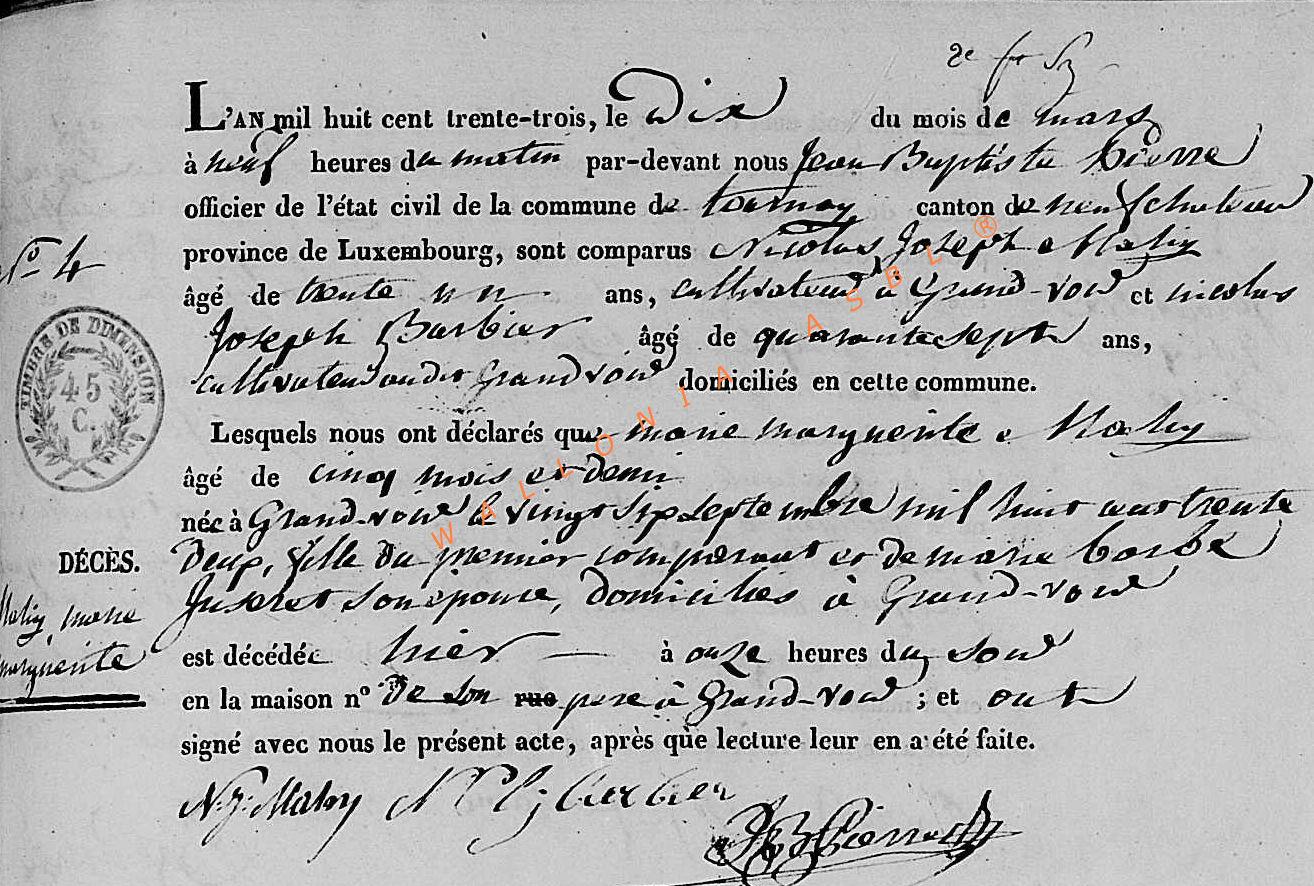 2e
L'AN mil huit cent trente-trois, le Dix du mois de mars
à neuf heures du matin par-devant nous Jean Baptiste Pierre
officier de l'état civil de la commune de tournay canton de neufchateau
province de Luxembourg, sont comparus Nicolas Joseph Mahy
âgé de trente un ans, cultivateur à Grand-voir et nicolas
N° 4
Joseph Barbier âgé de quarante sept ans,
cultivateur audit Grandvoir domiciliés en cette commune.
TIMBRE DE DIMENSION
45
C.
Lesquels nous ont déclarés que marie marguerite Mahy
âgé de cinq mois et demi
née à Grand-voir le vingt six septembre mil huit cent trente
DÉCÈS.
Deux, fille du premier comparant et de marie barbe
Mahy, marie
marguerite
Juseret son épouse, domiciliés à Grand-voir
est décédée hier à onze heures du soir
en la maison n° de son rue pere à Grand-voir ; et ont
signé avec nous le présent acte, après que lecture leur en a été faite.
N. J. Mahy N J barbier
JB Pierre
WALLONIA ASBL ®